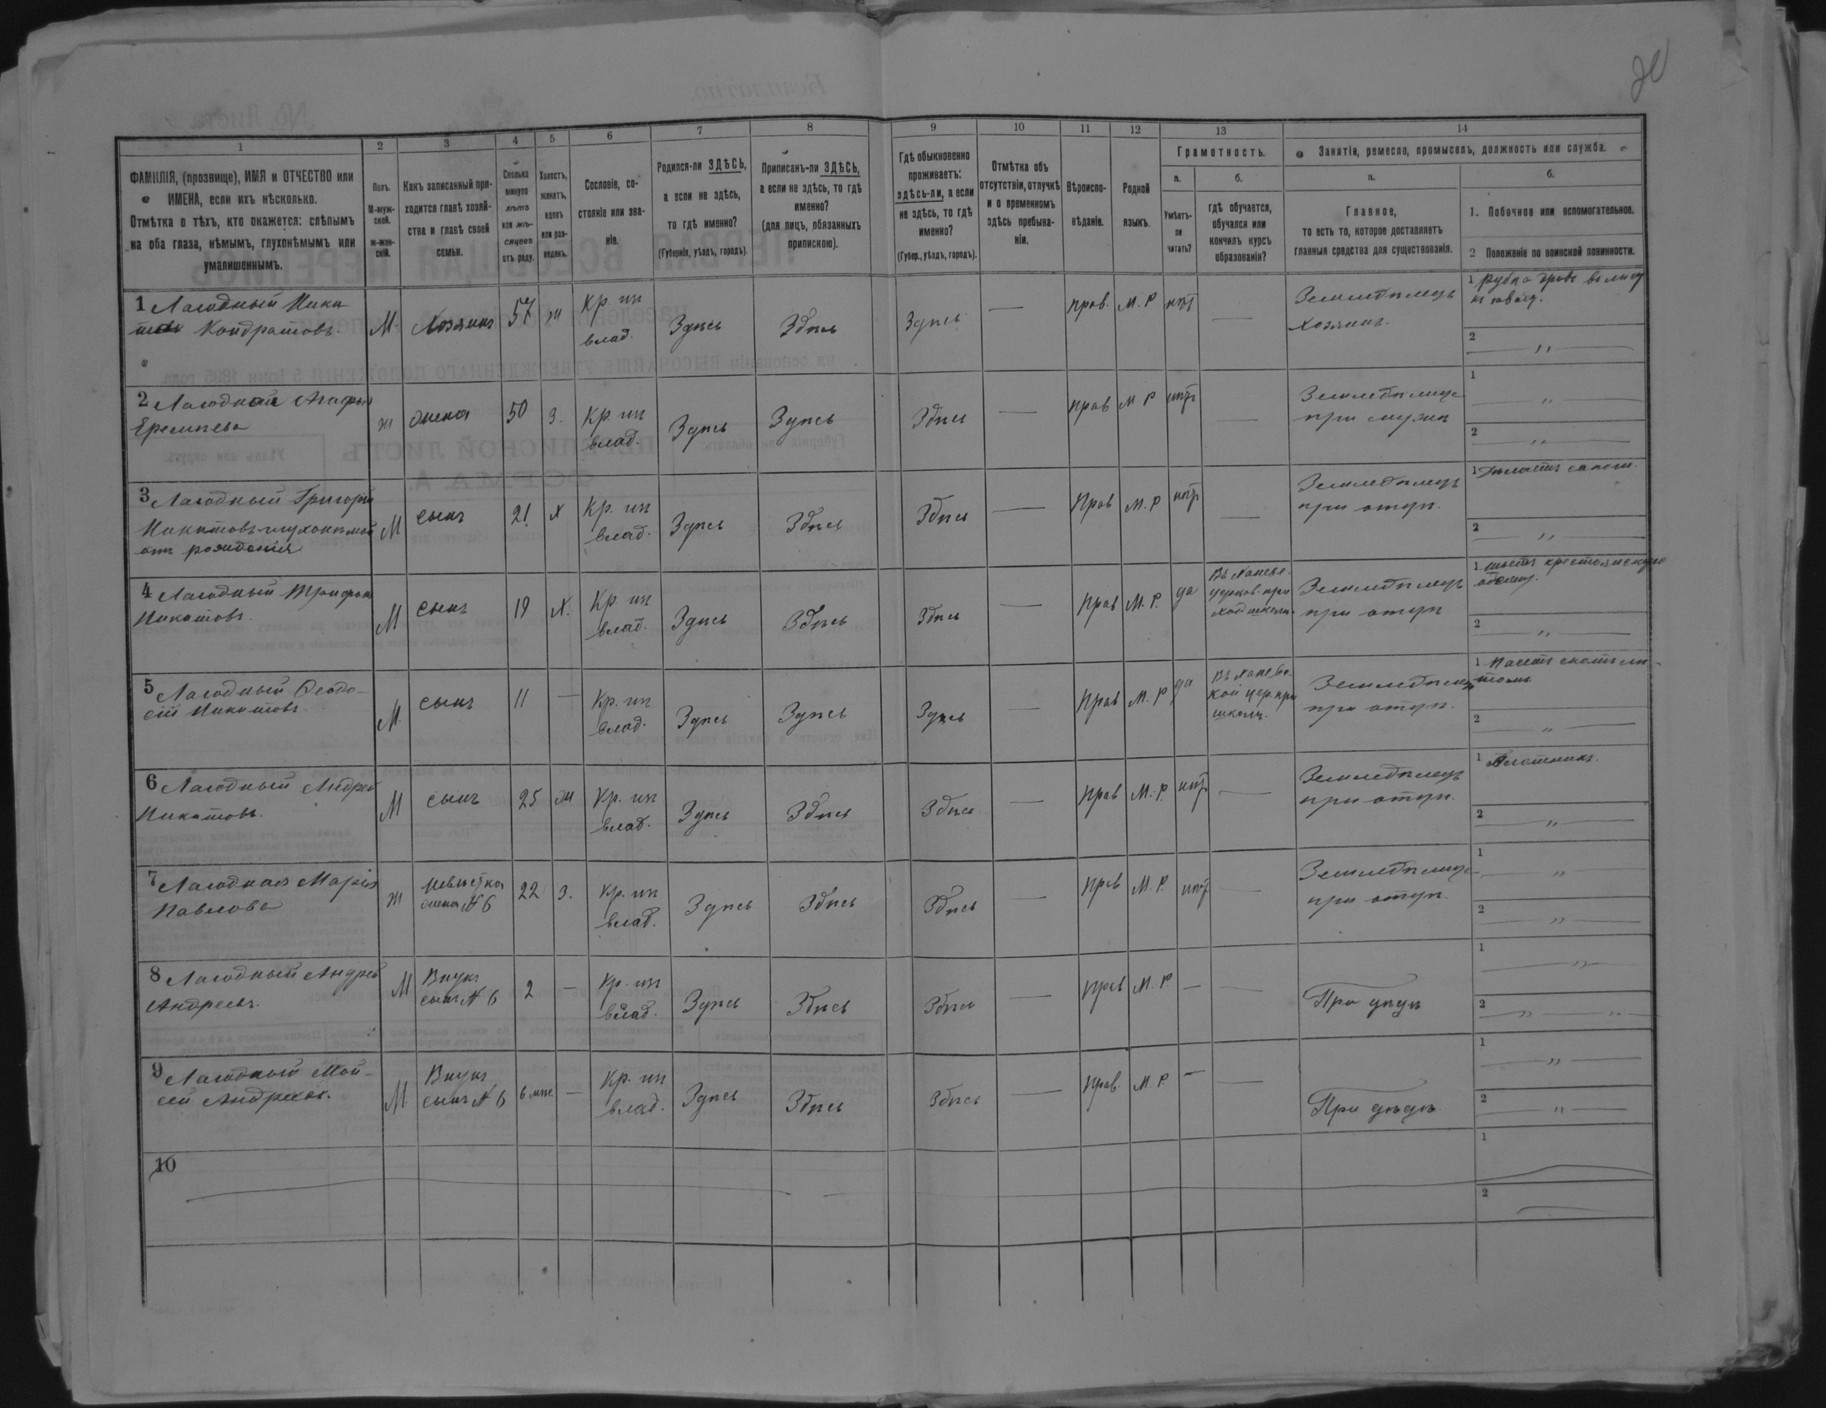 1
2
3
4
5
6
7
8
9
10
11
12
13
14
ФАМИЛІЯ, (прозвище), ИМЯ и ОТЧЕСТВО или
ИМЕНА, если ихъ нѣсколько.
Отмѣтка о тѣхъ, кто окажется: слѣпымъ
на оба глаза, нѣмымъ, глухонѣмымъ или
умалишеннымъ.
Полъ.
М-муж-
ской.
ж-жен-
скій.
Какъ записанный при-
ходится главѣ хозяй-
ства и главѣ своей
семьи.
Сколько
минуло
лѣтъ
или мѣ-
сяцевъ
отъ роду.
Холостъ,
женатъ,
вдовъ
или раз-
веденъ.
Сословіе, со-
стояніе или зва-
ніе.
Родился-ли ЗДѢСЬ,
а если не здѣсь,
то гдѣ именно?
(Губернія, уѣздъ, городъ).
Приписанъ-ли ЗДѢСЬ,
а если не здѣсь, то гдѣ
именно?
(для лицъ, обязанныхъ
припискою).
Гдѣ обыкновенно
проживаетъ:
здѣсь-ли, а если
не здѣсь, то гдѣ
именно?
(Губер., уѣздъ, городъ).
Отмѣтка объ
отсутствіи, отлучкѣ
и о временномъ
здѣсь пребыва-
ніи.
Вѣроиспо-
вѣданіе.
Родной
языкъ.
Грамотность.
а.
Умѣетъ-
ли
читать?
б.
гдѣ обучается,
обучался или
кончилъ курсъ
образованія?
Занятіе, ремесло, промыселъ, должность или служба.
а.
Главное,
то есть то, которое доставляетъ
главныя средства для существованія.
б.
1. Побочное или вспомогательное.
2 Положеніе по воинской повинности.
1 Лагодный Ники
Кондратовъ
М Хозяинъ 57 ж Кр. ип
влад. Здѣсь Здѣсь Здѣсь — прав. М. Р нѣт — Земледѣлецъ
хозяинъ. 1 Рубка дровъ
2 "
2 Лагодная
ж жена 50 З. Кр. ип
влад. Здѣсь Здѣсь Здѣсь — прав М Р нѣт — 1 "
при мужѣ 2 "
3 Лагодный Григорій
Никитовъ глухонѣмой
отъ рожденія
М сынъ 21 Х Кр. ип
влад. Здѣсь Здѣсь Здѣсь — Прав М. Р нѣт — Земледѣлецъ
при отцѣ. 1
2 "
4 Лагодный Трифон
Никитовъ
М сынъ 19 Х. Кр. ип
влад. Здѣсь Здѣсь Здѣсь — Прав М. Р. да Земледѣлецъ
при отцѣ 1
2 "
5 Лагодный Ѳеодо-
сій Никитовъ
М сынъ 11 — Кр. ип
влад. Здѣсь Здѣсь Здѣсь — Прав М. Р да
школѣ. при отцѣ. 1
2 "
6 Лагодный Андрей
Никитовъ
М сынъ 25 ж Кр. ип
влад. Здѣсь Здѣсь Здѣсь — Прав М. Р. нѣт — Земледѣлецъ
при отцѣ. 1 Плотникъ.
2 "
7 Лагодная Марія
Павлова
ж Невѣстка
жена № 6 22 З. Кр. ип
влад. Здѣсь Здѣсь Здѣсь — Прав М. Р. нѣт —
при отцѣ. 1 "
2 "
8 Лагодный Андрей
Андреевъ.
М Внукъ
сынъ № 6 2 — Кр. ип
влад. Здѣсь Здѣсь Здѣсь — Прав М. Р. — — При дѣдѣ 1 "
2 " "
9 Лагодный Мой-
сей Андреевъ.
М Внукъ
сынъ № 6 — Кр. ип
влад. Здѣсь Здѣсь Здѣсь Прав. М. Р. — — При дѣдѣ. 1 "
2 "
10
1
2